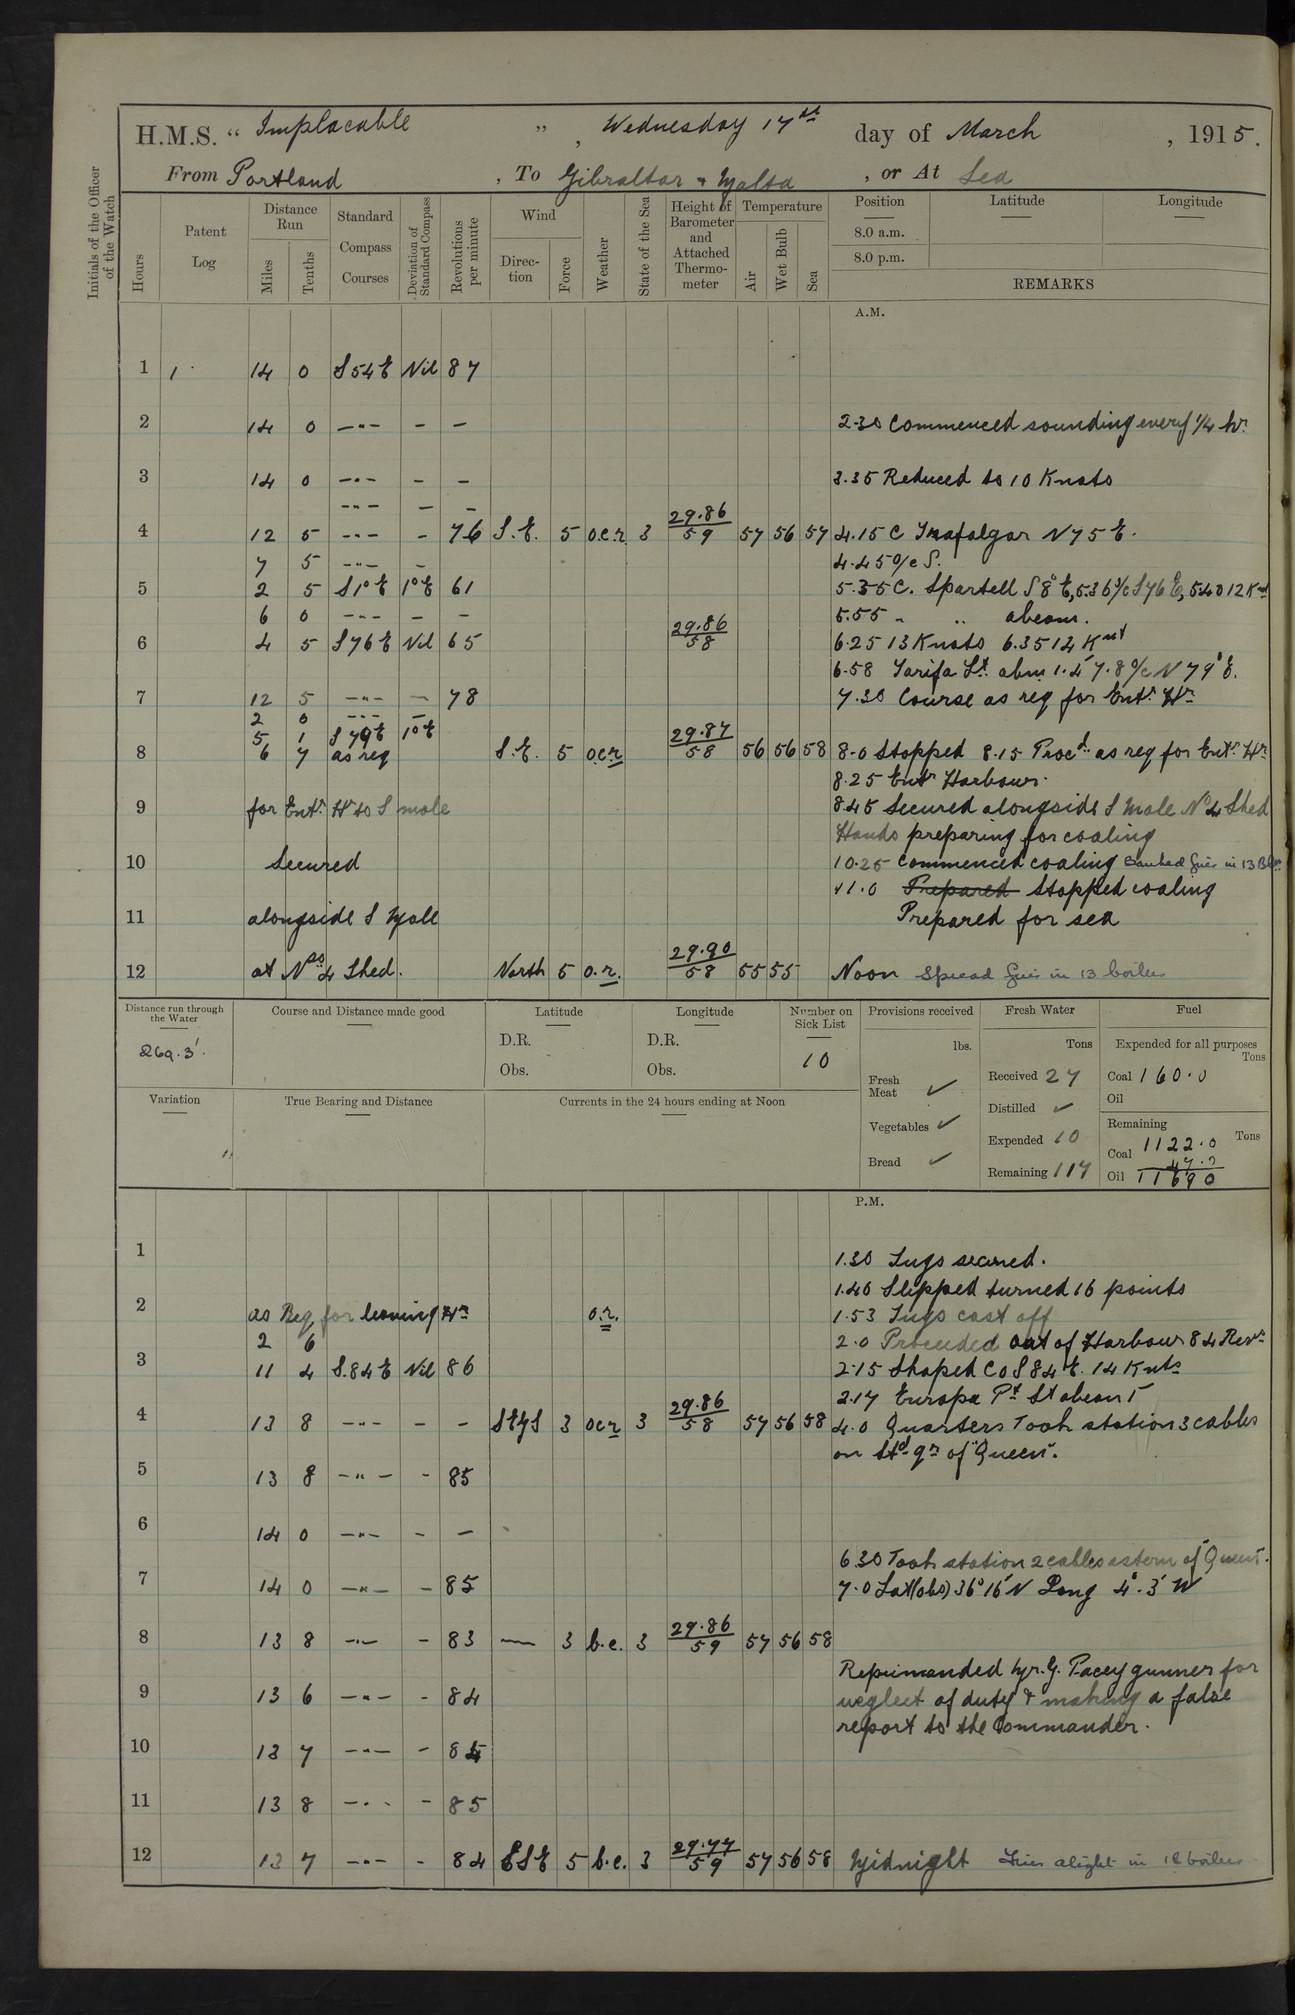 H.M.S. “ Implacable ” , Wednesday 17th day of March , 1915.
From Portland , To Gibraltar & Malta , or At Sea
Initials of the Officer of the Watch
Hours
Patent Log
Distance Run
Miles
Tenths
Standard Compass Courses
Deviation of Standard Compass
Revolutions per minute
Wind
Direction
Force
Weather
State of the Sea
Height of Barometer and Attached Thermometer
Temperature
Air
Wet Bulb
Sea
Position
8.0 a.m.
8.0 p.m.
Latitude
Longitude
REMARKS
A.M.
1 1 14 0 S54E Nil 87
2 14 0 —"— - — 2.30 Commenced sounding every 1/4 hr.
3 14 0 —"— - — 3.35 Reduced to 10 Knots
—"— — —
4 12 5 —"— - 76 S.E. 5 o.c.r. 3 29.86/59 57 56 57 4.15 C Trafalgar N75E.
7 5 —"— - 4.45 a/c S.
5 2 5 S1°E 1°E 61 5.35 C. Spartell S8°E, 5.36 a/c S76E, 5.40 12 Kts
6 0 —"— - — 5.55 " " abeam.
6 4 5 S76E Nil 65 29.86/58 6.25 13 Knots 6.35 14 Knt
6.58 Tarifa Lt. abm 1.4' 7.8 a/c N79°E.
7 12 5 —"— — 78 7.30 Course as req for Entg Hr
2 0 —"— —
5 1 S79E 1°E
8 6 7 as req S.E. 5 o.c.r 29.87/58 56 56 58 8.0 Stopped 8.15 Procd. as req for Entg Hr
8.25 Entd Harbour.
9 for Entg Hr to S mole 8.45 Secured alongside S Mole No 4 Shed
Hands preparing for coaling
10 Secured 10.25 Commenced coaling Banked fires in 13 Blrs
11.0 Prepared Stopped coaling
11 alongside S Mole Prepared for sea
12 at Nos 4 Shed. North 5 o.r. 29.90/58 55 55 Noon Spread fires in 13 boilers
Distance run through the Water
269.3'.
Course and Distance made good
Latitude
D.R.
Obs.
Longitude
D.R.
Obs.
Number on Sick List
10
Provisions received
lbs.
Fresh Meat ✓
Vegetables ✓
Bread ✓
Fresh Water
Tons
Received 27
Distilled ✓
Expended 10
Remaining 117
Fuel
Expended for all purposes
Tons
Coal 160.0
Oil
Remaining
Tons
Coal 1122.0
47.0
Oil 1169 0
Variation
"
True Bearing and Distance
Currents in the 24 hours ending at Noon
P.M.
1 1.30 Tugs secured.
1.40 Slipped turned 16 points
2 as Req for leaving Hr o.r. 1.53 Tugs cast off
2 6 2.0 Proceeded out of Harbour 84 Revs
3 11 4 S.84E Nil 86 2.15 Shaped Co S84E. 14 Knts
2.17 Europa Pt Lt abeam 1'
4 13 8 —"— - — SEyS 3 ocr 3 29.86/58 57 56 58 4.0 Quarters Took station 3 cables
on Std. qr of "Queen".
5 13 8 —"— - 85
6 14 0 —"— - —
6.30 Took station 2 cables astern of "Queen".
7 14 0 —"— - 85 7.0 Lat(obs) 36° 16'N Long 4°.3' W
8 13 8 —"— - 83 — 3 b.c. 3 29.86/59 57 56 58
Reprimanded Mr. G. Pacey gunner for
9 13 6 —"— - 84 neglect of duty & making a false
report to the Commander.
10 13 7 —"— - 84
11 13 8 —"— - 85
12 13 7 —"— - 84 ESE 5 b.c. 3 29.77/59 57 56 58 Midnight Fires alight in 18 boilers